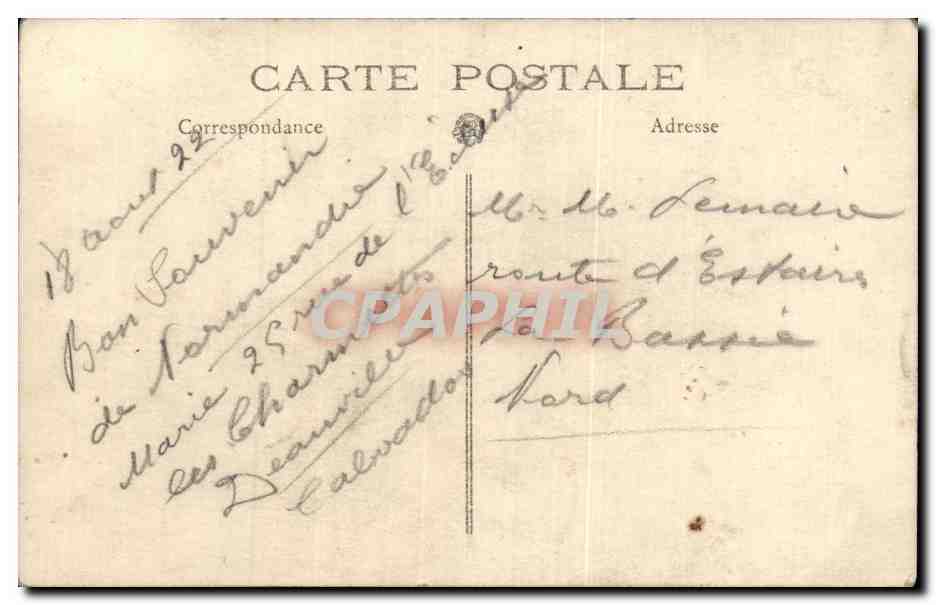 CARTE POSTALE
Correspondance
Adresse
18 aout 22
Bon Souvenir
de Normandie
Marie 25 rue de l'Ecluse
les Charmettes
Deauville
Calvados
Mr M. Lemaire
route d'Estaires
La Bassée
Nord
CPAPHIL